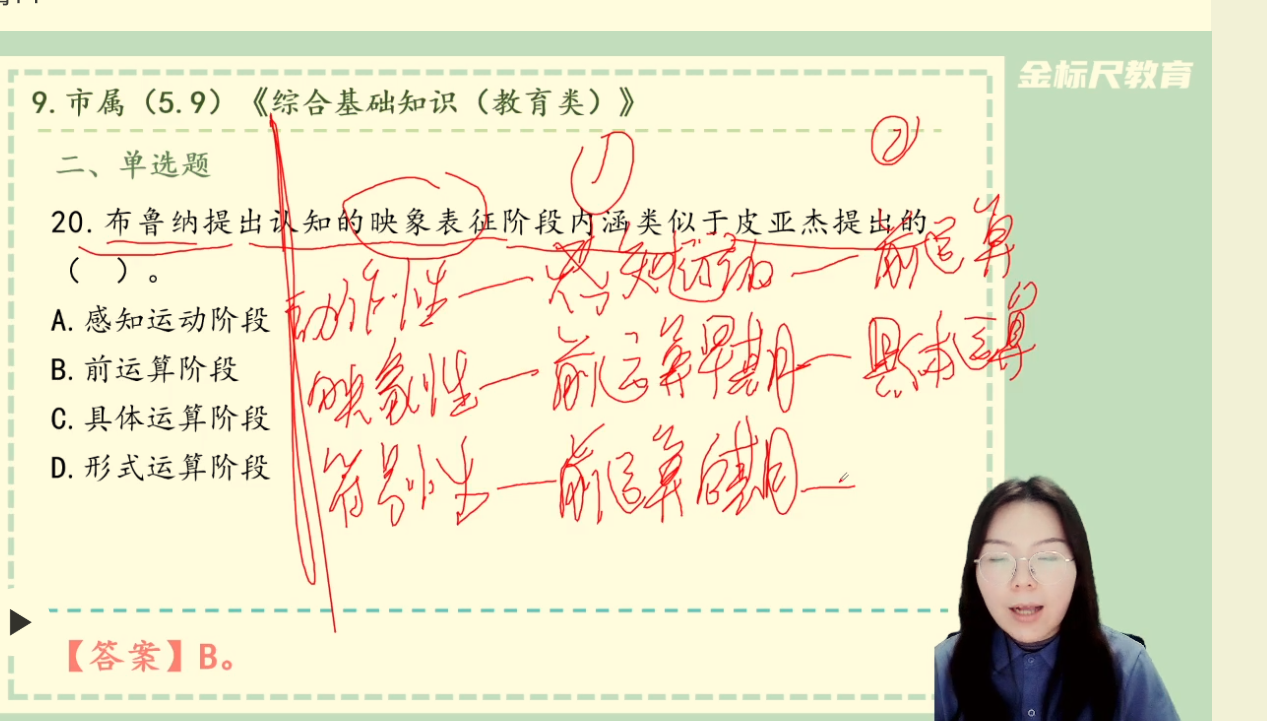 金标尺教育
9.市属（5.9）《综合基础知识（教育类）》
二、单选题
① ②
20. 布鲁纳提出认知的映象表征阶段内涵类似于皮亚杰提出的
（ ）。
动作性—感知运动—前运算
A. 感知运动阶段
映象性—前运算早期—具体运算
B. 前运算阶段
C. 具体运算阶段
符号性—前运算后期—
D. 形式运算阶段
【答案】B。